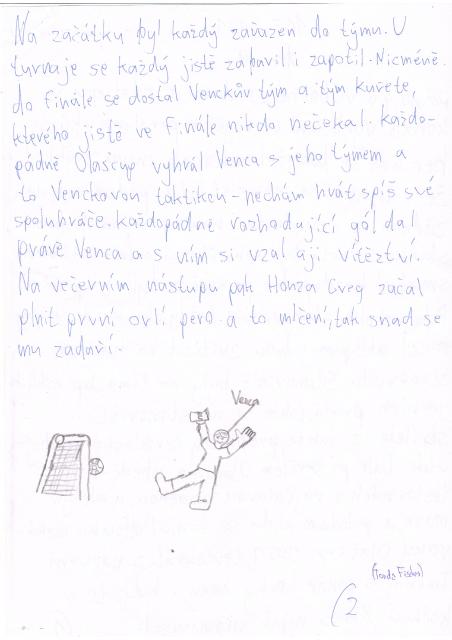 Na začátku byl každý zařazen do týmu. U
turnaje se každý jistě zabavil i zapotil. Nicméně
do finále se dostal Venckův tým a tým kuřete,
kterého jistě ve finále nikdo nečekal. každo-
pádně Olašcup vyhrál Venca s jeho týmem a
to Venckovou taktikou - nechám hrát spíš své
spoluhráče. každopádně rozhodující gól dal
právě Venca a s ním si vzal aji vítěztví.
Na večerním nástupu pak Honza Greg začal
plnit první orlí pero a to mlčení, tak snad se
mu zadaří.
Venca
(Tonda Fisher)
2